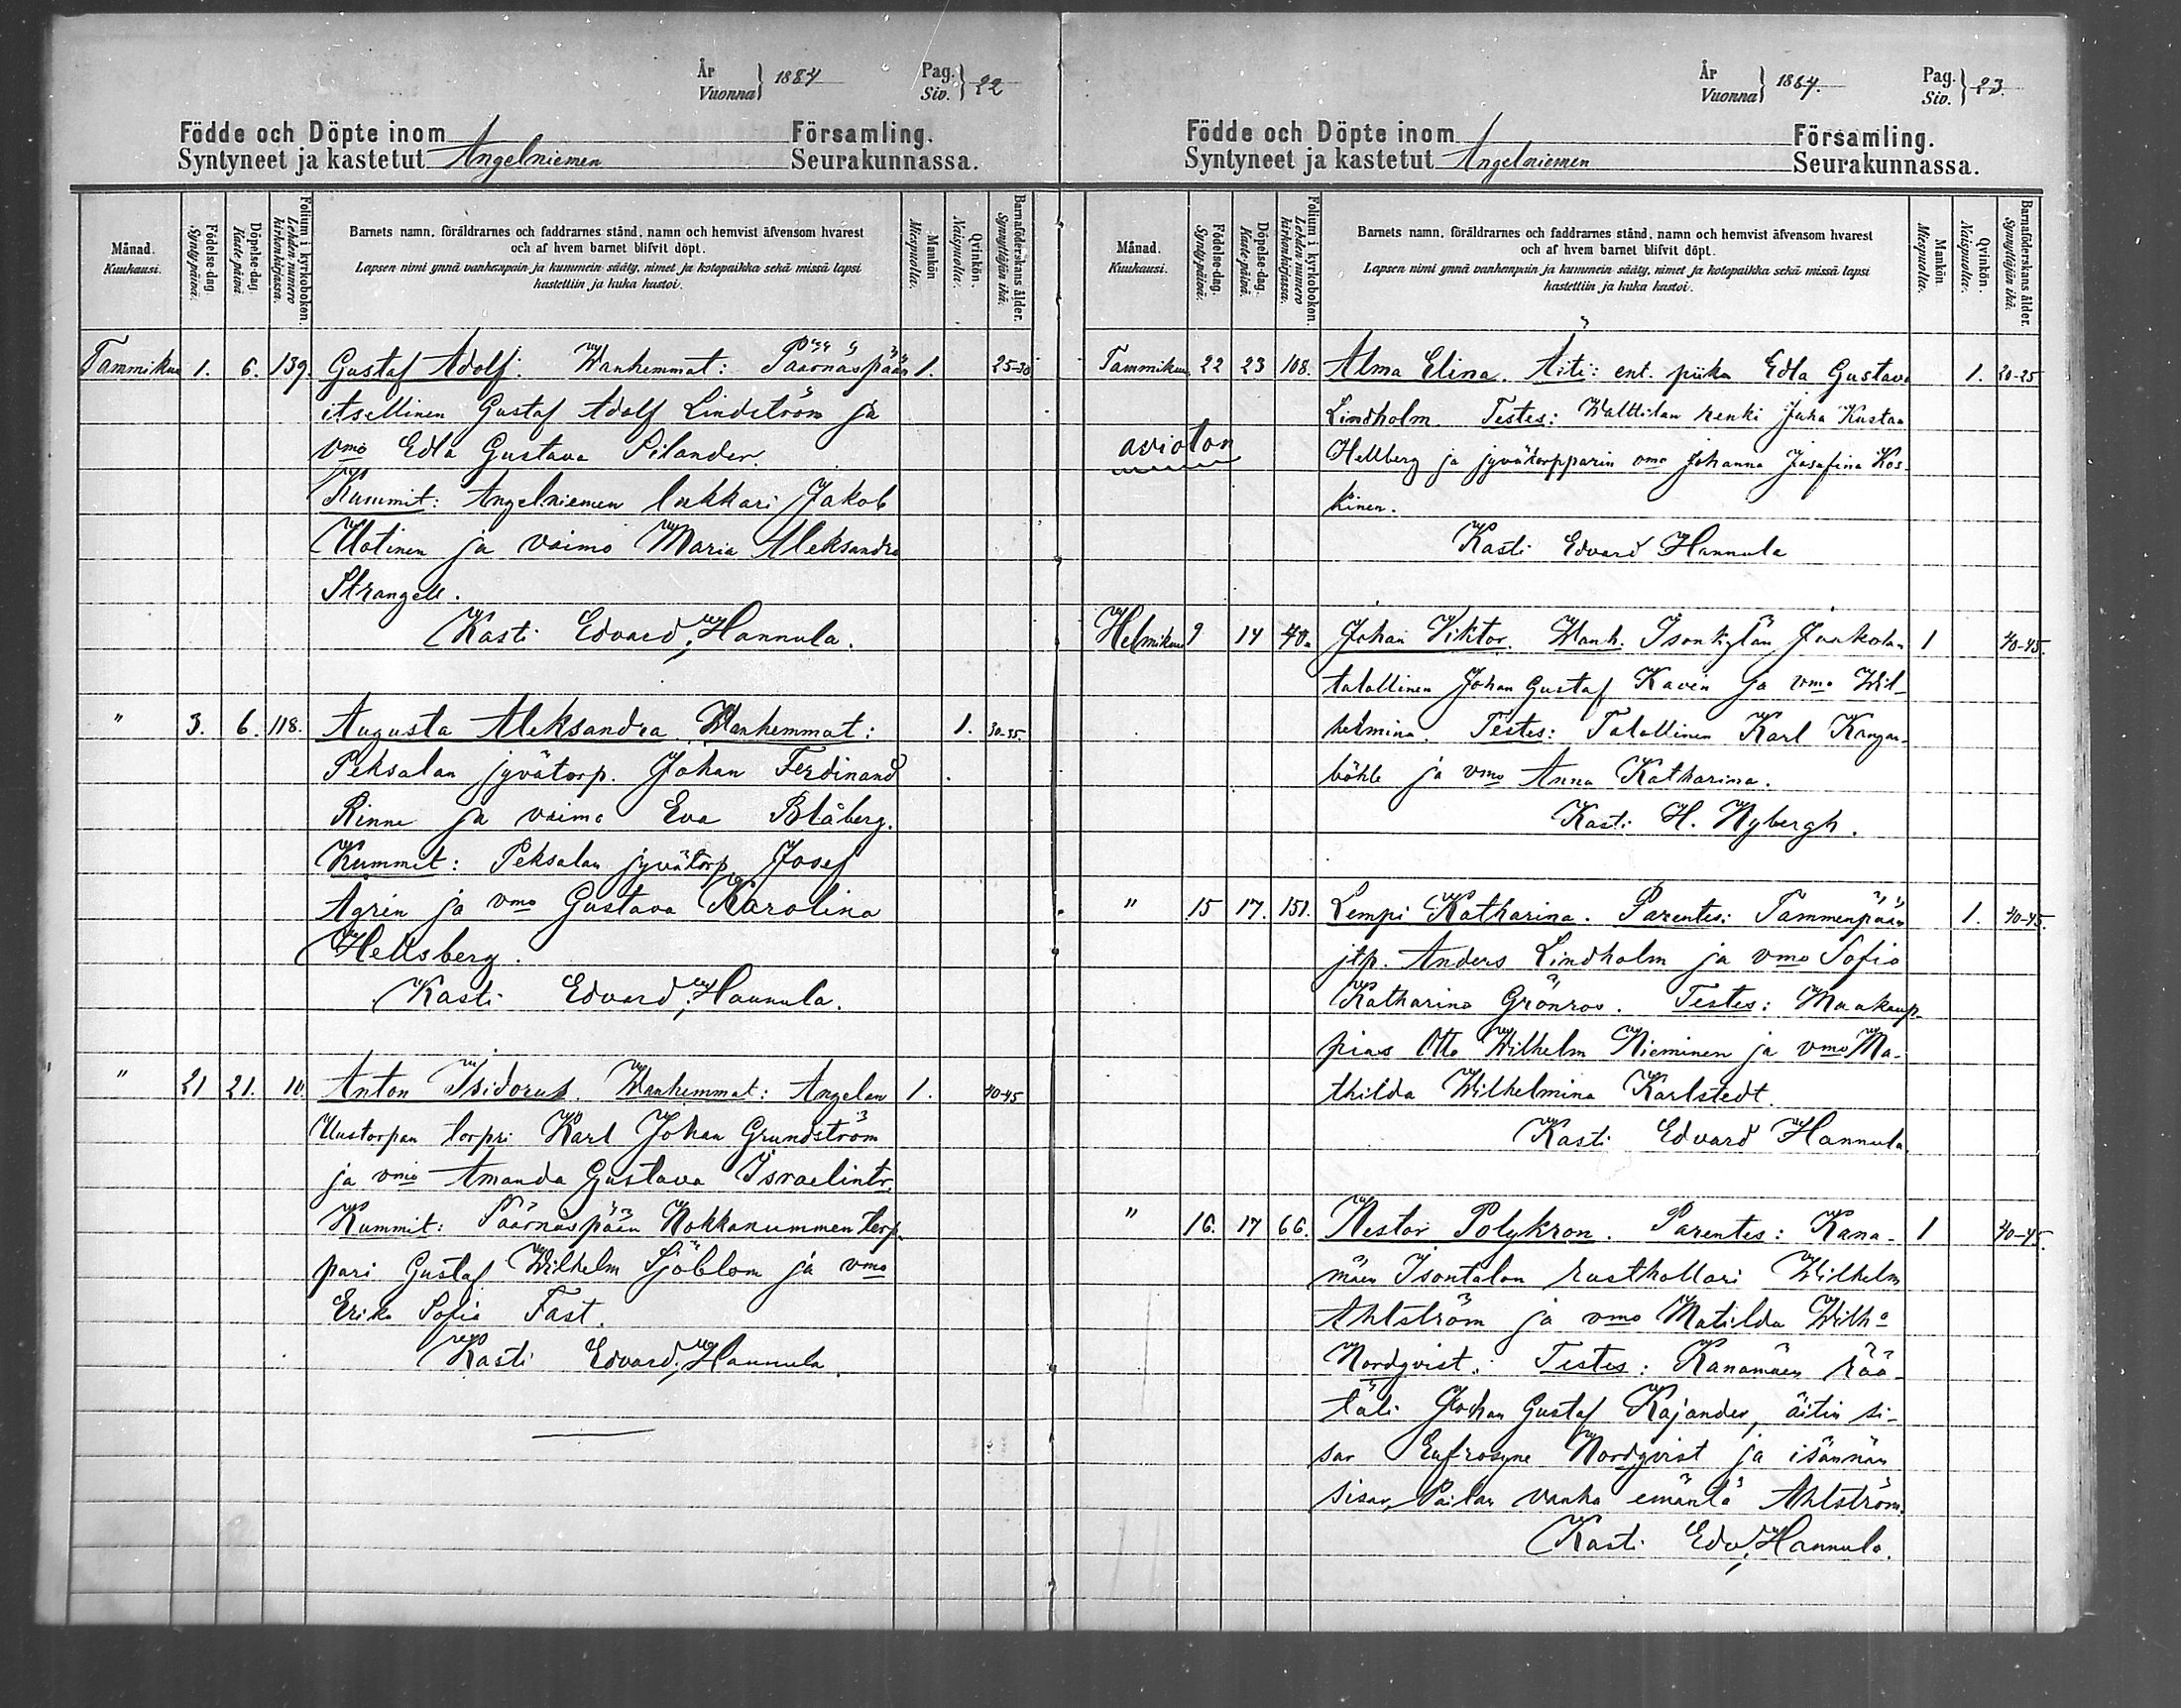 År
Vuonna } 1884
Pag.
Siv. } 22
Födde och Döpte inom
Syntyneet ja kastetut Angelniemen
Församling.
Seurakunnassa.
Månad.
Kuukausi.
Födelse-dag.
Synty-päivä.
Döpelse-dag.
Kaste-päivä.
Folium i kyrkoboken.
Lehden numero kirkonkirjassa.
Barnets namn, föräldrarnes och faddrarnes stånd, namn och hemvist äfvensom hvarest
och af hvem barnet blifvit döpt.
Lapsen nimi ynnä vanhempain ja kummein sääty, nimet ja kotopaikka sekä missä lapsi
kastettiin ja kuka kastoi.
Mankön.
Miespuolia.
Qvinkön.
Naispuolia.
Barnaföderskans ålder.
Synnyttäjän ikä.
Tammikuu 1. 6. 139. Gustaf Adolf: Wanhemmat: Päärnäspään 1. 25-30
itsellinen Gustaf Adolf Lindström ja
vmo Edla Gustava Silander.
Kummit: Angelniemen lukkari Jakob
Uotinen ja vaimo Maria Aleksandra
Strangell.
Kasti Edvard Hannula.
" 3. 6. 118. Augusta Aleksandra. Wanhemmat: 1. 30-35.
Peksalan jyvätorp. Johan Ferdinand
Rinne ja vaimo Eva Blåberg.
Kummit: Peksalan jyvätorp. Josef
Agrén ja vmo Gustava Karolina
Hellsberg.
Kasti Edvard Hannula.
" 21 21. 10. Anton Isidorus. Wanhemmat: Angelan 1. 40-45
Uustorpan torpri Karl Johan Grundström
ja vmo Amanda Gustava Israelintr.
Kummit: Päärnäspään Nokkanummen torp-
pari Gustaf Wilhelm Sjöblom ja vmo
Erika Sofia Fast.
Kasti Edvard Hannula.
År
Vuonna } 1884.
Pag.
Siv. } 23.
Födde och Döpte inom
Syntyneet ja kastetut Angelniemen
Församling.
Seurakunnassa.
Månad.
Kuukausi.
Födelse-dag.
Synty-päivä.
Döpelse-dag.
Kaste-päivä.
Folium i kyrkoboken.
Lehden numero kirkonkirjassa.
Barnets namn, föräldrarnes och faddrarnes stånd, namn och hemvist äfvensom hvarest
och af hvem barnet blifvit döpt.
Lapsen nimi ynnä vanhempain ja kummein sääty, nimet ja kotopaikka sekä missä lapsi
kastettiin ja kuka kastoi.
Mankön.
Miespuolia.
Qvinkön.
Naispuolia.
Barnaföderskans ålder.
Synnyttäjän ikä.
Tammikuu 22 23 108. Alma Elina. Äiti: ent. piika Edla Gustava 1. 20-25
Lindholm. Testes: Walttilan renki Juha Kustaa
avioton
Hellberg ja jyvätorpparin vmo Johanna Josefina Kos-
kinen.
Kasti Edvard Hannula
Helmikuu 9 14 40. Johan Viktor. Wanh. Isonkylän Jaakolan 1 40-45.
talollinen Johan Gustaf Kavén ja vmo Wil-
helmina. Testes: Talollinen Karl Kangas-
böhle ja vmo Anna Katharina.
Kasti H. Nybergh.
" 15 17. 151. Lempi Katharina. Parentes: Tammenpään 1. 40-45.
jtp. Anders Lindholm ja vmo Sofia
Katharina Grönros. Testes: Maakaup-
pias Otto Wilhelm Nieminen ja vmo Ma-
thilda Wilhelmina Karlstedt.
Kasti Edvard Hannula.
" 16. 17 66. Nestor Polykron. Parentes: Kana- 1 40-45.
mäen Isontalon rusthollari Wilhelm
Ahlström ja vmo Matilda Wilha
Nordqvist. Testes: Kanamäen rää-
täli Johan Gustaf Kajander, äitin si-
sar Eufrosyne Nordqvist ja isännän
sisar, vanha emäntä Ahlström.
Kasti Edv. Hannula.